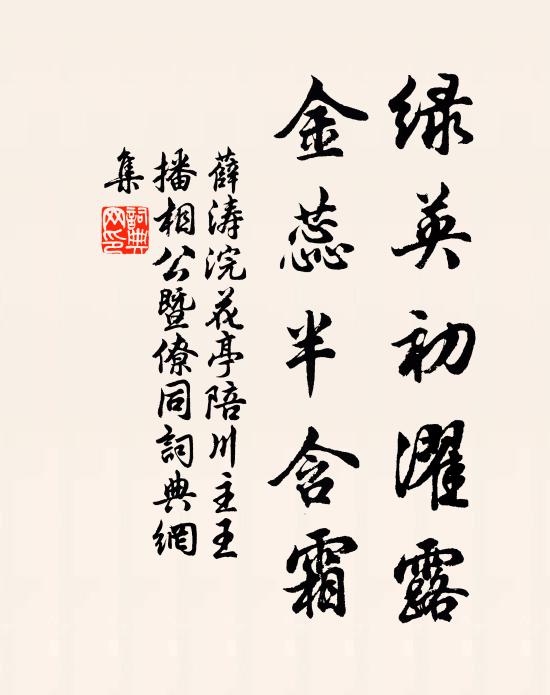 绿英初濯露
金蕊半含霜
薛涛浣花亭陪川主王
播相公暨僚同詞典網
集
詞典網印